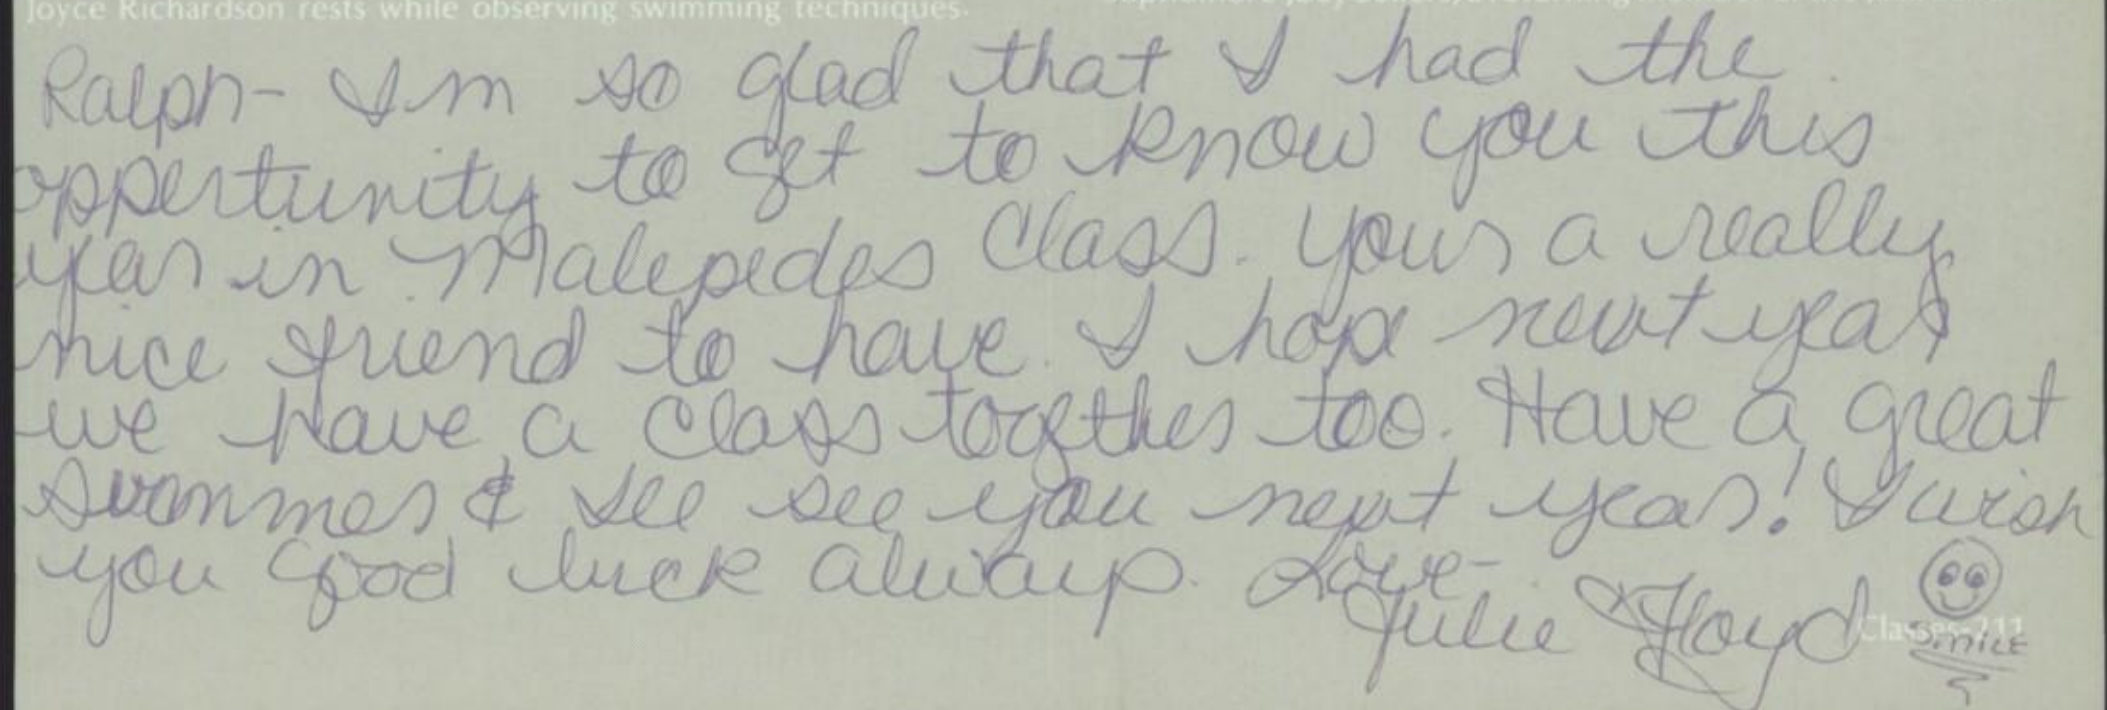 Joyce Richardson rests while observing swimming techniques.
Ralph- I'm so glad that I had the
oppertunity to get to know you this
year in Malepedes class. Your a really
nice friend to have. I hope next year
we have a class together too. Have a great
summer & see see you next year! I wish
you good luck always. Love-
Julie Floyd
Classes-211
Smile